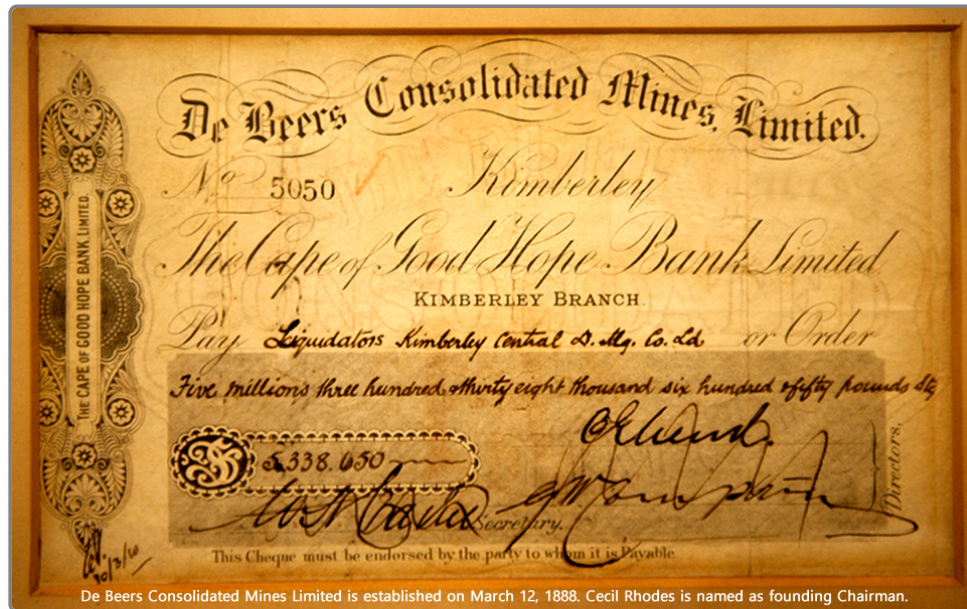 De Beers Consolidated Mines, Limited.
No 5050 Kimberley
The Cape of Good Hope Bank Limited
KIMBERLEY BRANCH
Pay Liquidators Kimberley Central D. Mg. Co. Ld or Order
Five millions three hundred & thirty eight thousand six hundred & fifty pounds Stg
5,338.650
Secretary.
Directors,
This Cheque must be endorsed by the party to whom it is Payable.
THE CAPE OF GOOD HOPE BANK LIMITED.
De Beers Consolidated Mines Limited is established on March 12, 1888. Cecil Rhodes is named as founding Chairman.